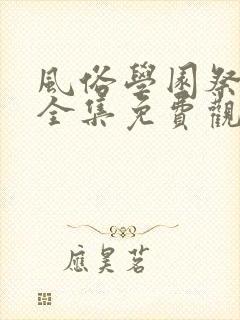 風俗學園祭
全集免費觀
應昊茗